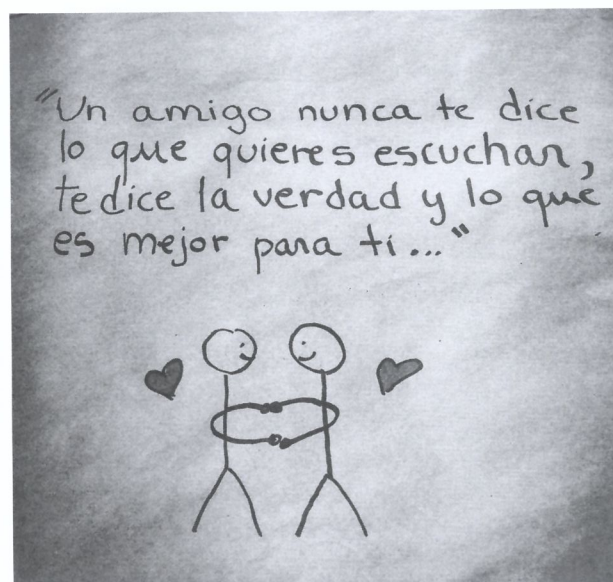 "Un amigo nunca te dice
lo que quieres escuchar,
te dice la verdad y lo que
es mejor para ti..."